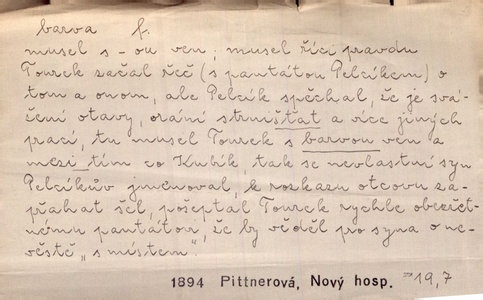 barva f.
musel s -ou ven; musel říci pravdu
Tourek začal řeč (s pantátou Pelcíkem) o
tom a onom, ale Pelcík spěchal, že je svá-
žení otavy, orání strništat a více jiných
prací, tu musel Tourek s barvou ven a
mezi tím co Kubík tak se nevlastní syn
Pelcíkův jmenoval, k rozkazu otcovu za-
přahat šel, pošeptal Tourek rychle obezřet-
nému pantátovi, že by věděl pro syna o ne-
věstě „s místem".
1894 Pittnerová, Nový hosp. 19,7